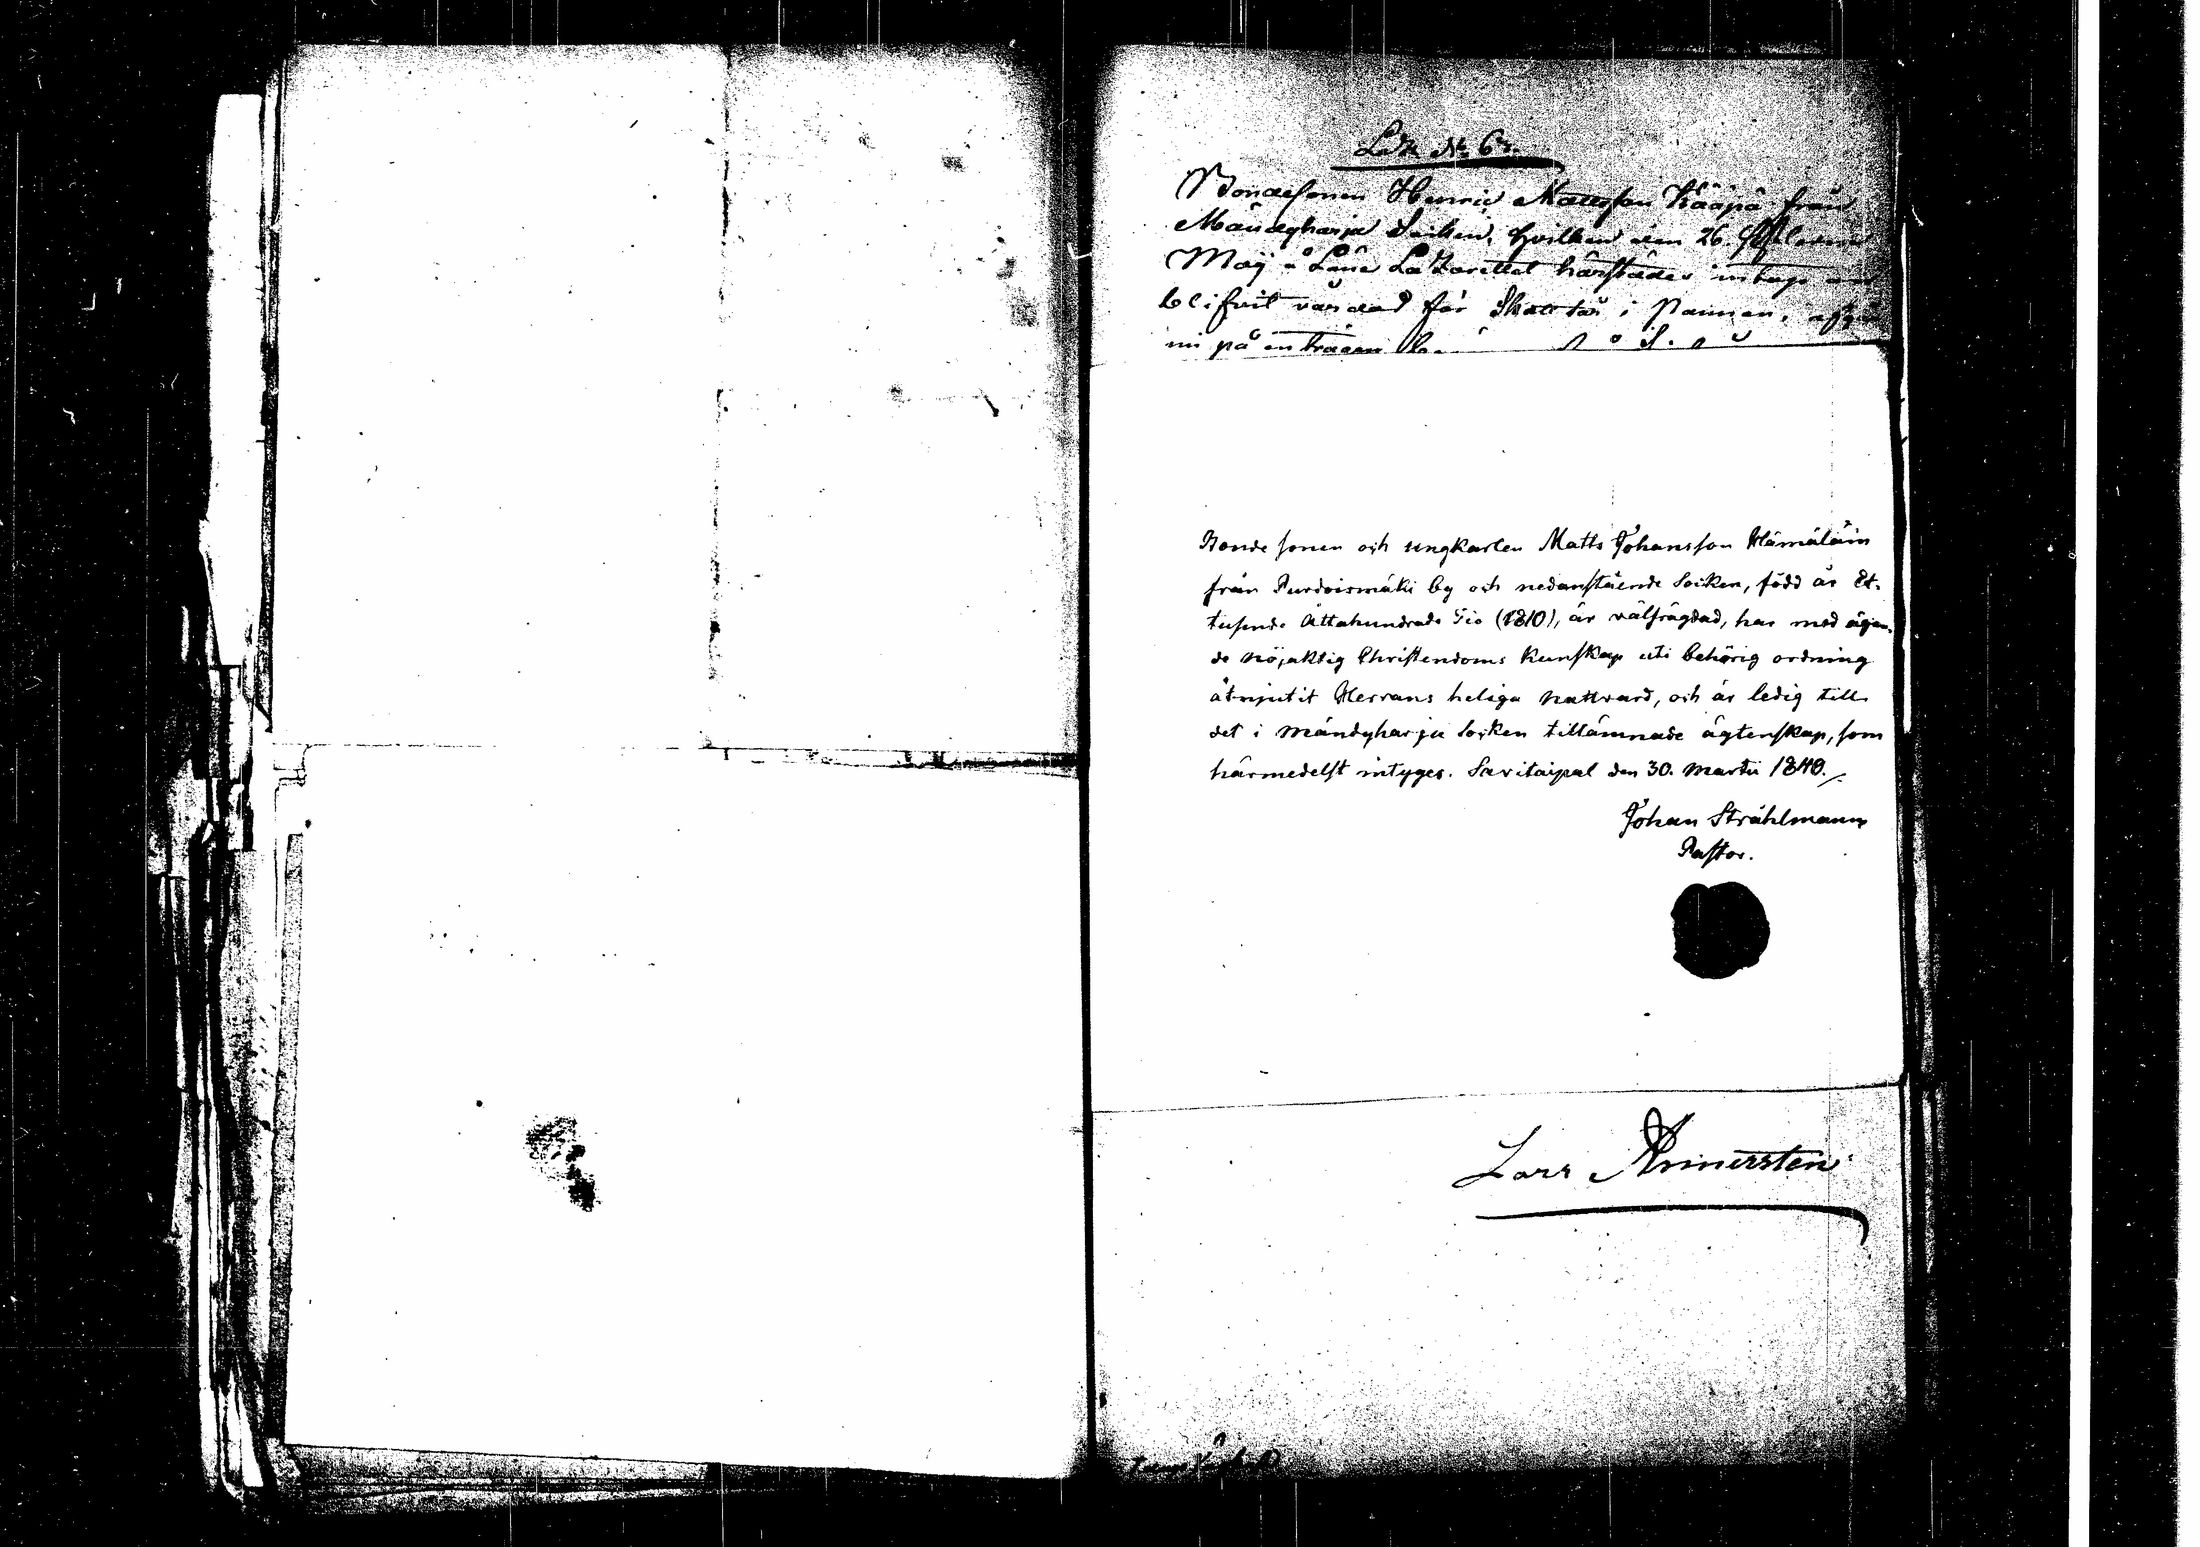 Bondesonen Henric Mattsson Kääpä från
Mändyharju Socken, hvilken den 26. sistledne
Maij å Läne Lazarettet härstädes intagen
blifvit vårdad för Skallsår i Pannan,
ni på
Bondesonen och ungkarlen Matts Johansson Hämäläin
från Purdoismäki by och nedanstående Socken, född år Et-
tusende Åttahundrade Tio (1810), är välfrägdad, har med ägan-
de nöjaktig Christendoms kunskap uti behörig ordning
åtnjutit Herrans heliga nattvard, och är ledig till
det i Mändyharju Socken tillämnade ägtenskap, som
härmedelst intyges. Savitaipal den 30. Martii 1840.
Johan Stråhlmann
Pastor.
Lars